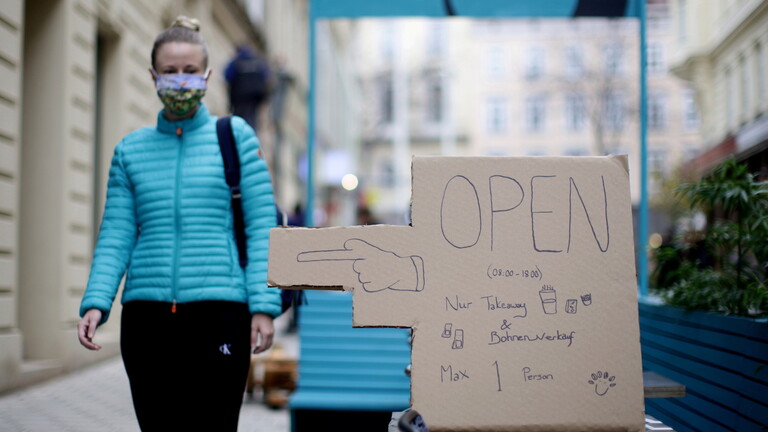 OPEN
(08:00-18:00)
Nur Takeaway
&
Bohnenverkauf
Max 1 Person
CK